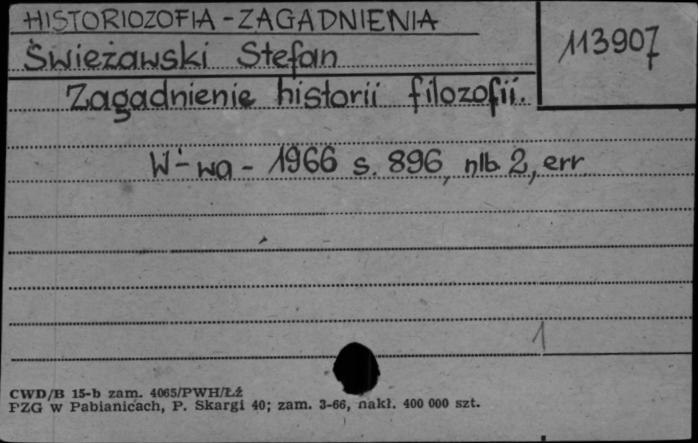 HISTORIOZOFIA - ZAGADNIENIA
113907
Świeżawski Stefan
Zagadnienie historii filozofii.
W-wa - 1966 s. 896, nlb 2, err
1
CWD/B 15-b zam. 4065/PWH/Łź
PZG w Pabianicach, P. Skargi 40; zam. 3-66, nakł. 400 000 szt.